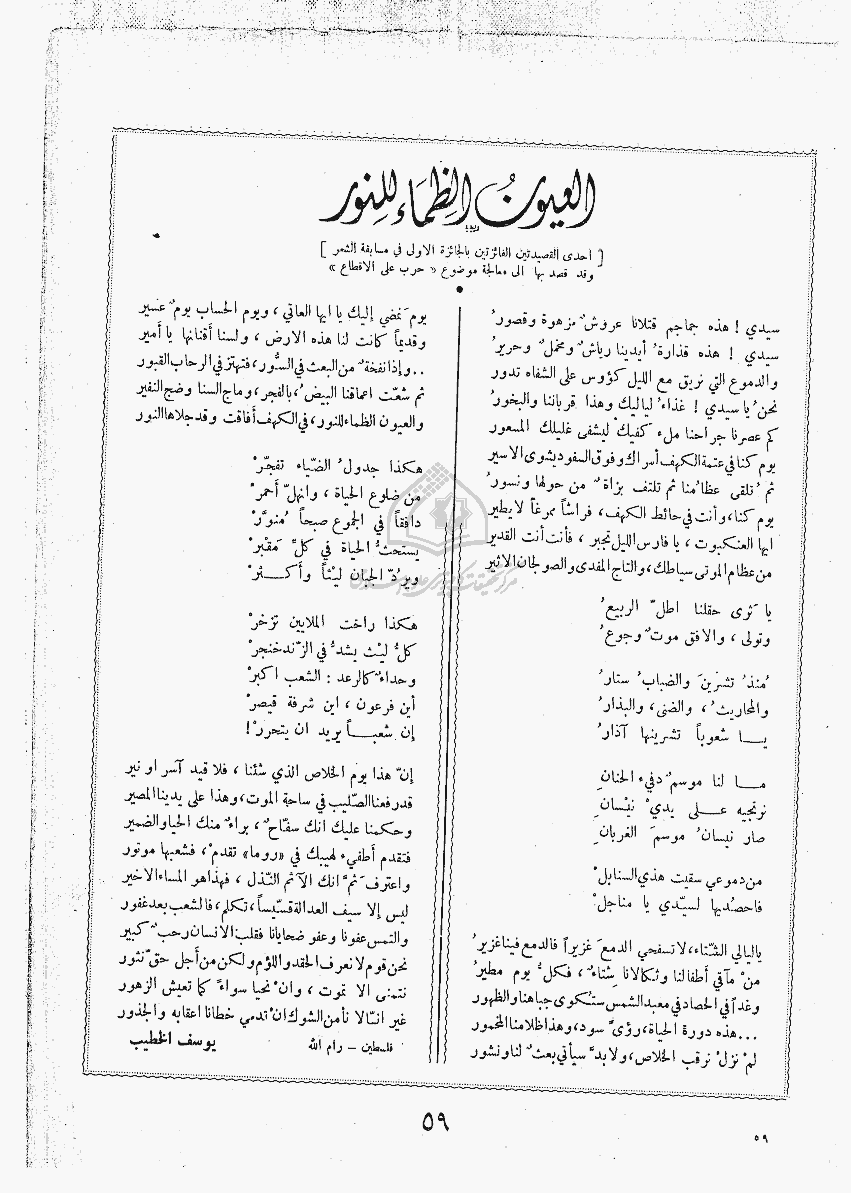 العيون الظِماء للِنور
[ احدى القصيدتين الفائزتين بالجائزة الاولى في مسابقة الشعر ]
وقد قصد بها الى معالجة موضوع « حرب على الاقطاع »
سيدي ! هذه جماجم قتلانا عروشٌ مزهوة وقصورُ
سيدي ! هذه قذارةُ أيدينا رياشٌ ومخملٌ وحريرُ
والدموع التي نريق مع الليل كؤوس على الشفاه تدور
نحنُ يا سيدي ! غذاءُ لياليك وهذا قرباننا والبخورُ
كم عصرنا جراحنا ملءَ كفيك ليشفى غليلك المسعور
يوم كنا في عتمة الكهف أسراك وفوق السفود يشوى الاسير
ثم تُلقى عظامُنا ثم تلتف بزاةٌ من حولها ونسورُ
يوم كنا، وأنت في حائط الكهف، فراشاً ممرغاً لا يطير
ايها العنكبوت، يا فارس الليل تجبر، فأنت أنت القدير
من عظام الموتى سياطك، والتاج المفدى والصولجان الاثير
يا تَرى حقلنا اطلّ الربيعُ
وتولى، والافق موتٌ وجوعُ
مُنذُ تشرينَ والضبابُ ستارُ
والمحاريثُ، والضنى، والبذارُ
يـا شعوباً تشرينها آذارُ
مـا لنا موسمٌ دفيء الحنانِ
نرتجيه عـلى يديْ نيْسانِ
صار نيسانُ موسمَ الغربانِ
من دموعي سقيت هذي السنابلْ
فاحصُديها لسيّدي يا مناجلْ
ياليالي الشّتاء، لا تسفحي الدمعَ غزيراً فالدمع فينا غزيرُ
منْ مآقي أطفالنا وثكالانا شِتاءٌ، فكلُّ يوم مطيرُ
وغداً في الحصاد في معبد الشمس ستُكوى جباهنا والظهور
...هذه دورة الحياة، رؤىً سود، وهذا ظلامنا المخمور
لمْ نزلْ نرقب الخلاص، ولا بدَّ سيأتي بعثٌ لنا ونشور
يومَ نمضي إليك يا ايها العاتي، ويوم الحساب يومٌ عسير
وقديماً كانت لنا هذه الارض، ولسنا أقنانها يا أمير
..وإذا نفخةٌ من البعث في السُّور، فتهتز في الرحاب القبور
ثم شعّت اعماقنا البيضُ، بالفجر، وماج السنا وضج النفير
والعيون الظماء للنور، في الكهف أفاقت وقد جلاها النور
هكذا جدولُ الضّياء تفجّرْ
من ضلوع الحياة، وانهلّ أحمرْ
دافقاً في الجموع صبحاً مُنوَّرْ
يستحثُّ الحياة في كلّ مَقْبرْ
ويردّ الجبان ليْثاً وأكـثرْ
هكذا راحت الملايين تزخرْ
كلُّ ليْث يشدُّ في الزّند خنجرْ
وحداءٌ كالرعد : الشعب اكبرْ
أين فرعون، اين شرفة قيصرْ
إن شعبـاً يريد ان يتحررْ!
إنّ هذا يوم الخلاص الذي شئنا، فلا قيد آسر او نير
قد رفعنا الصّليب في ساحة الموت، وهذا على يدينا المصير
وحكمنا عليك انك سفّاحٌ، براءٌ منك الحيا والضمير
فتقدم أطفيء لهيبك في «روما» تقدمْ، فشعبها موتور
واعترفَ ثمَّ انك الآثم النّذل، فهذا هو المساء الاخير
ليس إلا سيف العدالة قسّيساً، تكلم، فالشعب بعد غفور
والتمس عفونا وعفو ضحايانا فقلب الانسان رحبٌ كبير
نحن قوم لا نعرف الحقد واللؤم ولكن من أجل حقّ نثور
نتمنى الا تموت، وانْ نحيا سواءً كما تعيش الزهور
غير انّا لا نأمن الشوك انْ تدمي خطانا اعقابه والجذور
فلسطين – رام الله
يوسف الخطيب
٥٩
٥٩